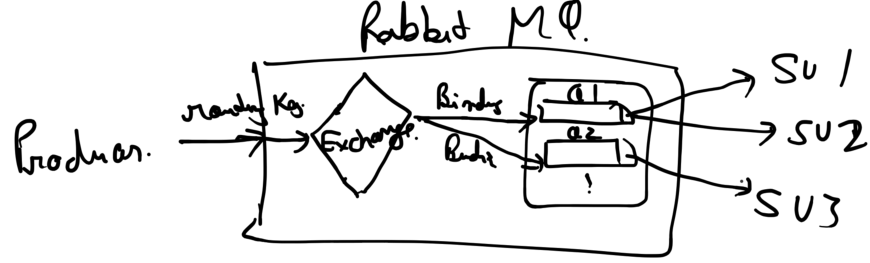 Rabbit MQ.
Producer.
routing Key.
Exchange.
Binding
Binding
Q1
Q2
!
SV1
SV2
SV3